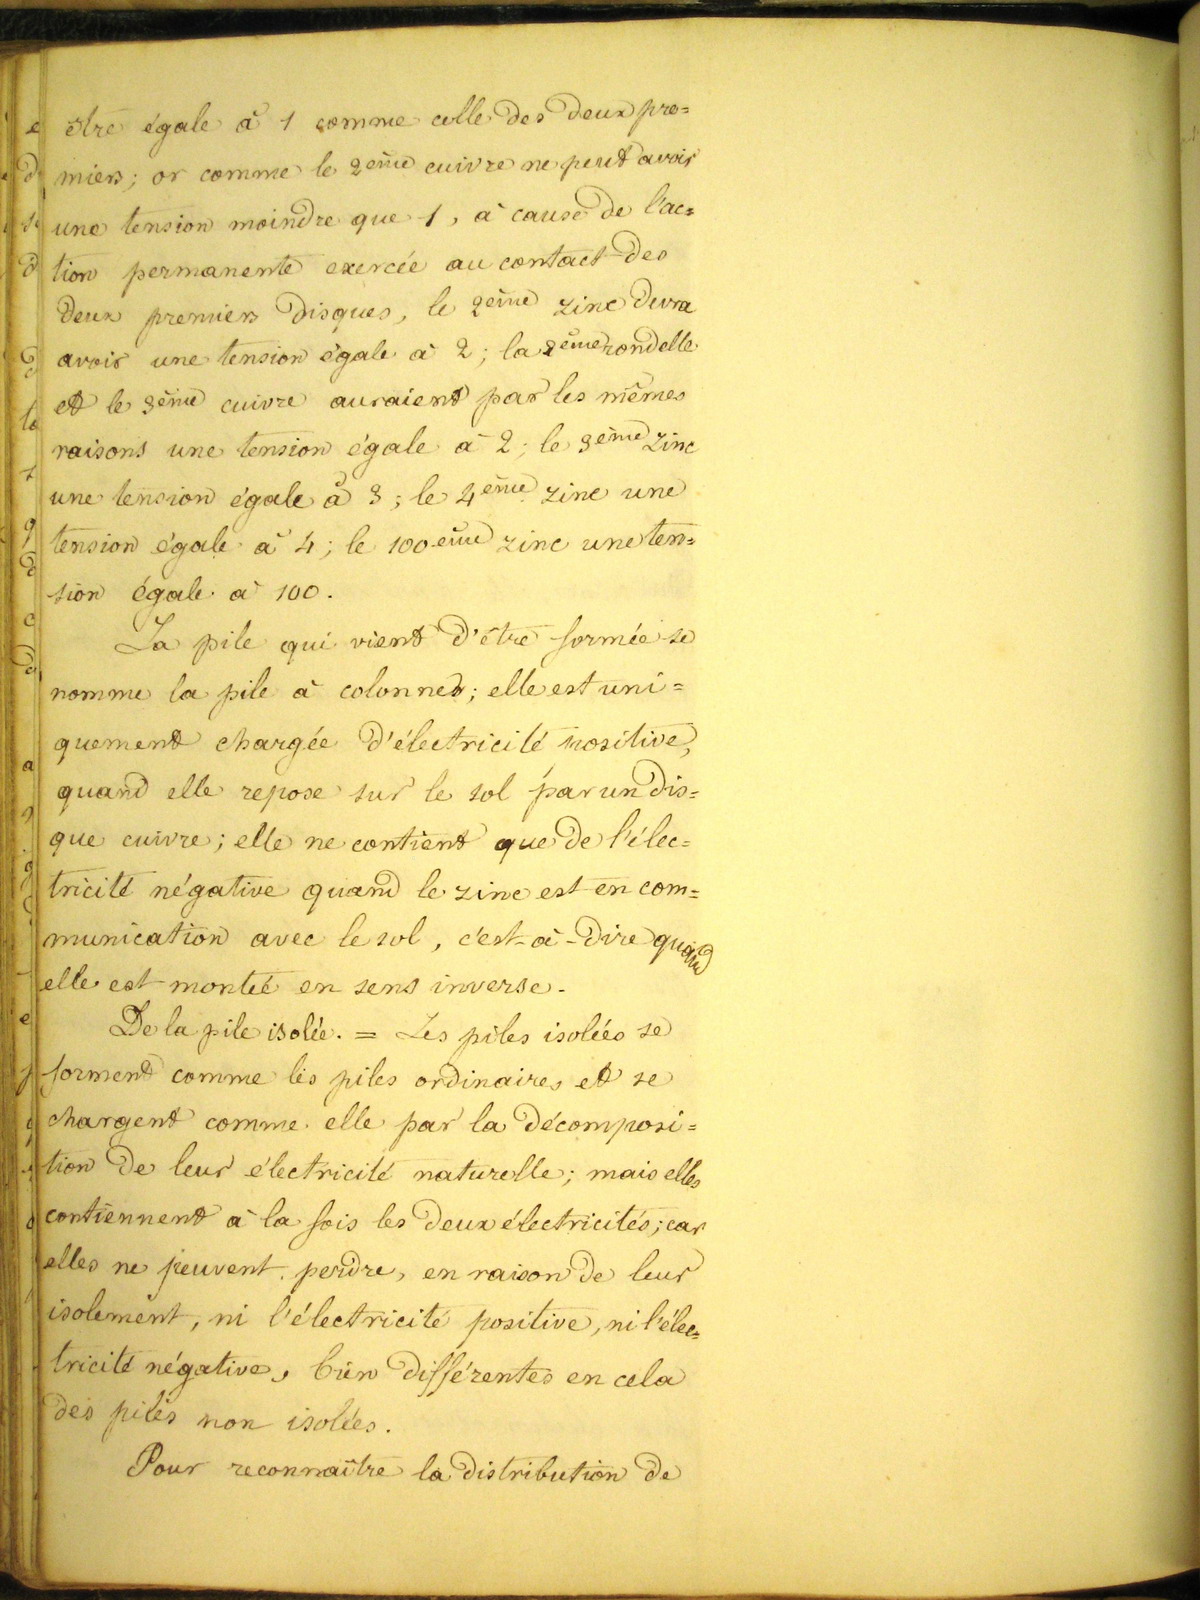 être égale à 1 comme celle des deux pre=
miers; or comme le 2ème cuivre ne peut avoir
une tension moindre que 1, à cause de l'ac=
tion permanente exercée au contact des
deux premiers disques, le 2ème zinc devra
avoir une tension égale à 2; la 2ème rondelle
et le 3ème cuivre auraient par les mêmes
raisons une tension égale à 2; le 3ème zinc
une tension égale à 3; le 4ème zinc une
tension égale à 4; le 100ème zinc une ten=
sion égale à 100.
La pile qui vient d'être formée se
nomme la pile à colonnes; elle est uni=
quement chargée d'électricité positive,
quand elle repose sur le sol par un dis=
que cuivre; elle ne contient que de l'élec=
tricité négative quand le zinc est en com=
munication avec le sol, c'est-à-dire quand
elle est montée en sens inverse.
De la pile isolée. = Les piles isolées se
forment comme les piles ordinaires et se
chargent comme elle par la décomposi=
tion de leur électricité naturelle; mais elles
contiennent à la fois les deux électricités; car
elles ne peuvent perdre, en raison de leur
isolement, ni l'électricité positive, ni l'élec=
tricité négative, bien différentes en cela
des piles non isolées.
Pour reconnaître la distribution de